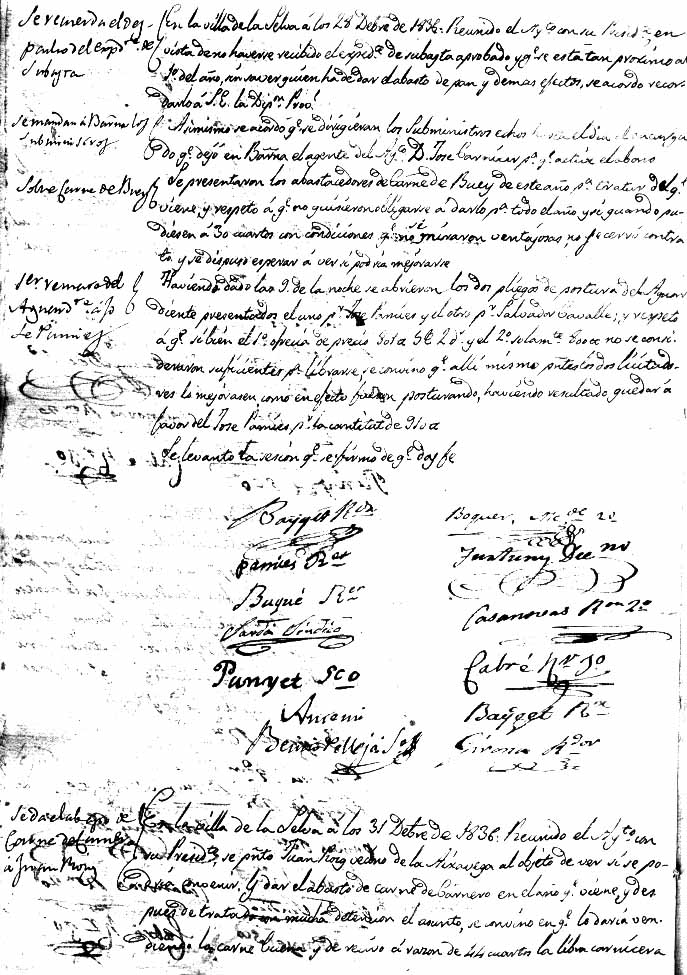 Se recuerda el des-
pacho del exp.te de
Subasta
En la villa de la Selva á los 28 Debre de 1836. Reunido el Ay.to con su Presid.te en
vista de no haverse recibido el exped.te de subasta aprobado y q.e se está tan próximo al
1.º del año, sin saver quien ha de dar el abasto de pan y demas efectos, se acordo recor-
darlo á S.E. la Dip.on Prov.l
Se mandan á Barna los
Subministros
Asimismo se acordó q.e se dirigieran los Subministros echos el dia
do q.e dejó en Barna el agente del Ay.to D. Jose Carnicer p.a q.e active el abono
Sobre Carne de Buey
Se presentaron los abastecedores de Carne de Buey de este año, p.a tratar del q.e
viene, y respeto á q.e no quisieron obligarse á darlo p.r todo el año y si quando pu-
diesen á 30 cuartos con condiciones q.e no se miraron ventajosas no se cerró contra-
to, y se dispuso esperar a ver si podria mejorarse
Se remata el
Aguard.te á Jo
se Pamies
Haviendo dado las 9. de la noche se abrieron los dos pliegos de postura del Aguar-
diente presentados el uno p.r Jose Pamies y el otro p.r Salvador Cavallé; y respeto
á q.e si bien el 1.º ofrecia de precio 801 y el 2.º solam.te 600 no se consi-
deraron suficientes p.a librarse, se convino q.e allí mismo los dos licitado-
res lo mejorasen como en efecto fueron posturando, haviendo resultado quedar á
favor del Jose Pamies, p.r la cantitat de 910
Se levantó la sesión q.e se firmó de q.e doy fe
Bayget R.or
Boquer, Alc.de 2.º
Pamies R.or
Fortuny Dec.no
Buqué R.or
Casanovas R.or 2.º
Sardá Síndico
Punyet Sco
Cabré R.or 3.º
Anceni
Bayget R.or
Girona R.dor
Se da el abasto de
Carne de Carnero
á Juan Roig
En la villa de la Selva á los 31 Debre de 1836. Reunido el Ay.to con
su Presid.te, se p.ntó Juan Roig vecino de la Aixavega al objeto de ver si se po-
dria convenir y dar el abasto de carne de Carnero en el año q.e viene, y des-
pues de tratado con mucha detencion el asunto, se convino en q.e lo daria ven-
diendo la carne buena y de recivo á razon de 44 cuartos la libra carnicera